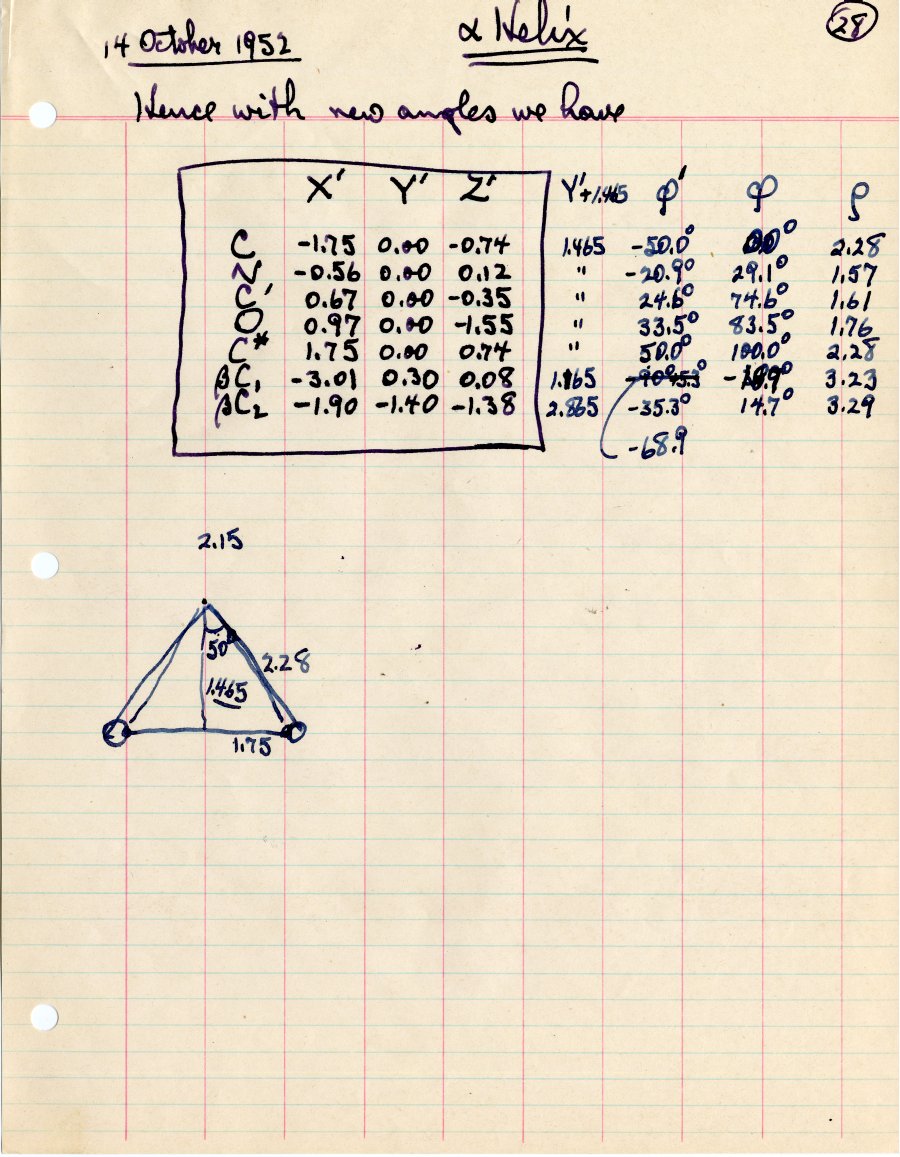 14 October 1952 α Helix 28
Hence with new angles we have
X' Y' Z' Y'+1.465 φ' φ ρ
C -1.75 0.00 -0.74 1.465 -50.0° 0.0° 2.28
N -0.56 0.00 0.12 " -20.9° 29.1° 1.57
C' 0.67 0.00 -0.35 " 24.6° 74.6° 1.61
O 0.97 0.00 -1.55 " 33.5° 83.5° 1.76
C* 1.75 0.00 0.74 " 50.0° 100.0° 2.28
βC₁ -3.01 0.30 0.08 1.165 -18.9° 3.23
βC₂ -1.90 -1.40 -1.38 2.865 -35.3° 14.7° 3.29
-68.9
2.15
50°
2.28
1.465
1.75